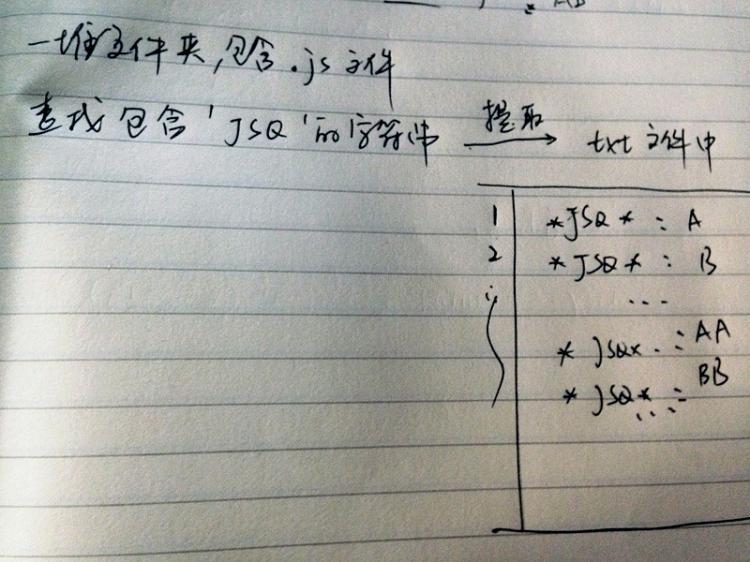 一堆文件夹,包含.js文件
查找包含'JSQ'的字符串 提取 txt文件中
1 *JSQ* : A
2 *JSQ* : B
...
* JSQ* : AA
* JSQ* : BB
...